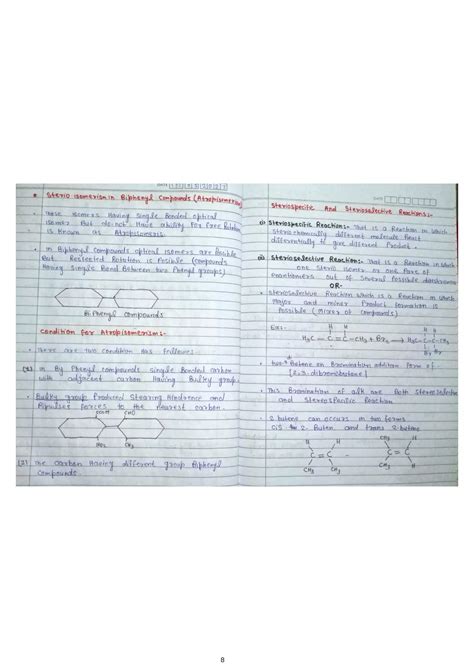 DATE
• Sterio isomerism in Biphenyl Compounds (Atropisomerism)
• These isomers Having single Bonded optical
isomer But do not Have ability for free Rotation
is known as Atropisomeris.
• in Biphenyl Compounds optical isomers are Possible
But Resisted Rotation is Posible (compounds
Having single Bond Between two Phenyl groups)
Bi Phenyl compounds
Condition for Atropisomerisms:-
• There are two condition as follows
(1) in By Phenyl compounds single Bonded carbon
with adjecent carbon Having Bulky group.
• Bulky group Produced Stearing Hindrence and
Repulset forces to the nearest carbon.
COOH CHO
NO₂ CH₃
(2) The carbon Having different group Biphenyl
Compounds.
DATE
Steriospecific And Sterioselective Reactions:-
(i) Steriospecific Reaction:- That is a Reaction in which
sterio chemically different molecule React
differentally to give different Product.
(ii) Sterioselective Reaction:- That is a Reaction in which
one sterio isomer or one Pare of
enantiomers out of several Possible
-OR-
• Sterioselective Reaction which is a Reaction in which
major and miner Product formation is
Possible (Mixer of compounds)
Ex:-
H H
H₃C-C=C-CH₃ + Br₂ → H₃C-C-C-CH₃
Br Br
• Butene on Bromination addition form of
[2,3, dibromobutane]
• This Bromination of alk are Both sterioselective
and steriospacific Reaction
• 2 butene can occurs in two forms
cis 2-Buten and trans 2-butene
H H
C=C
CH₃ CH₃
CH₃ H
C=C
H CH₃
8